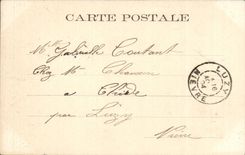 CARTE POSTALE
Mlle Gabrielle Coutant
Chez Mr
à
par Luzy
Nièvre
LUZY
NIEVRE